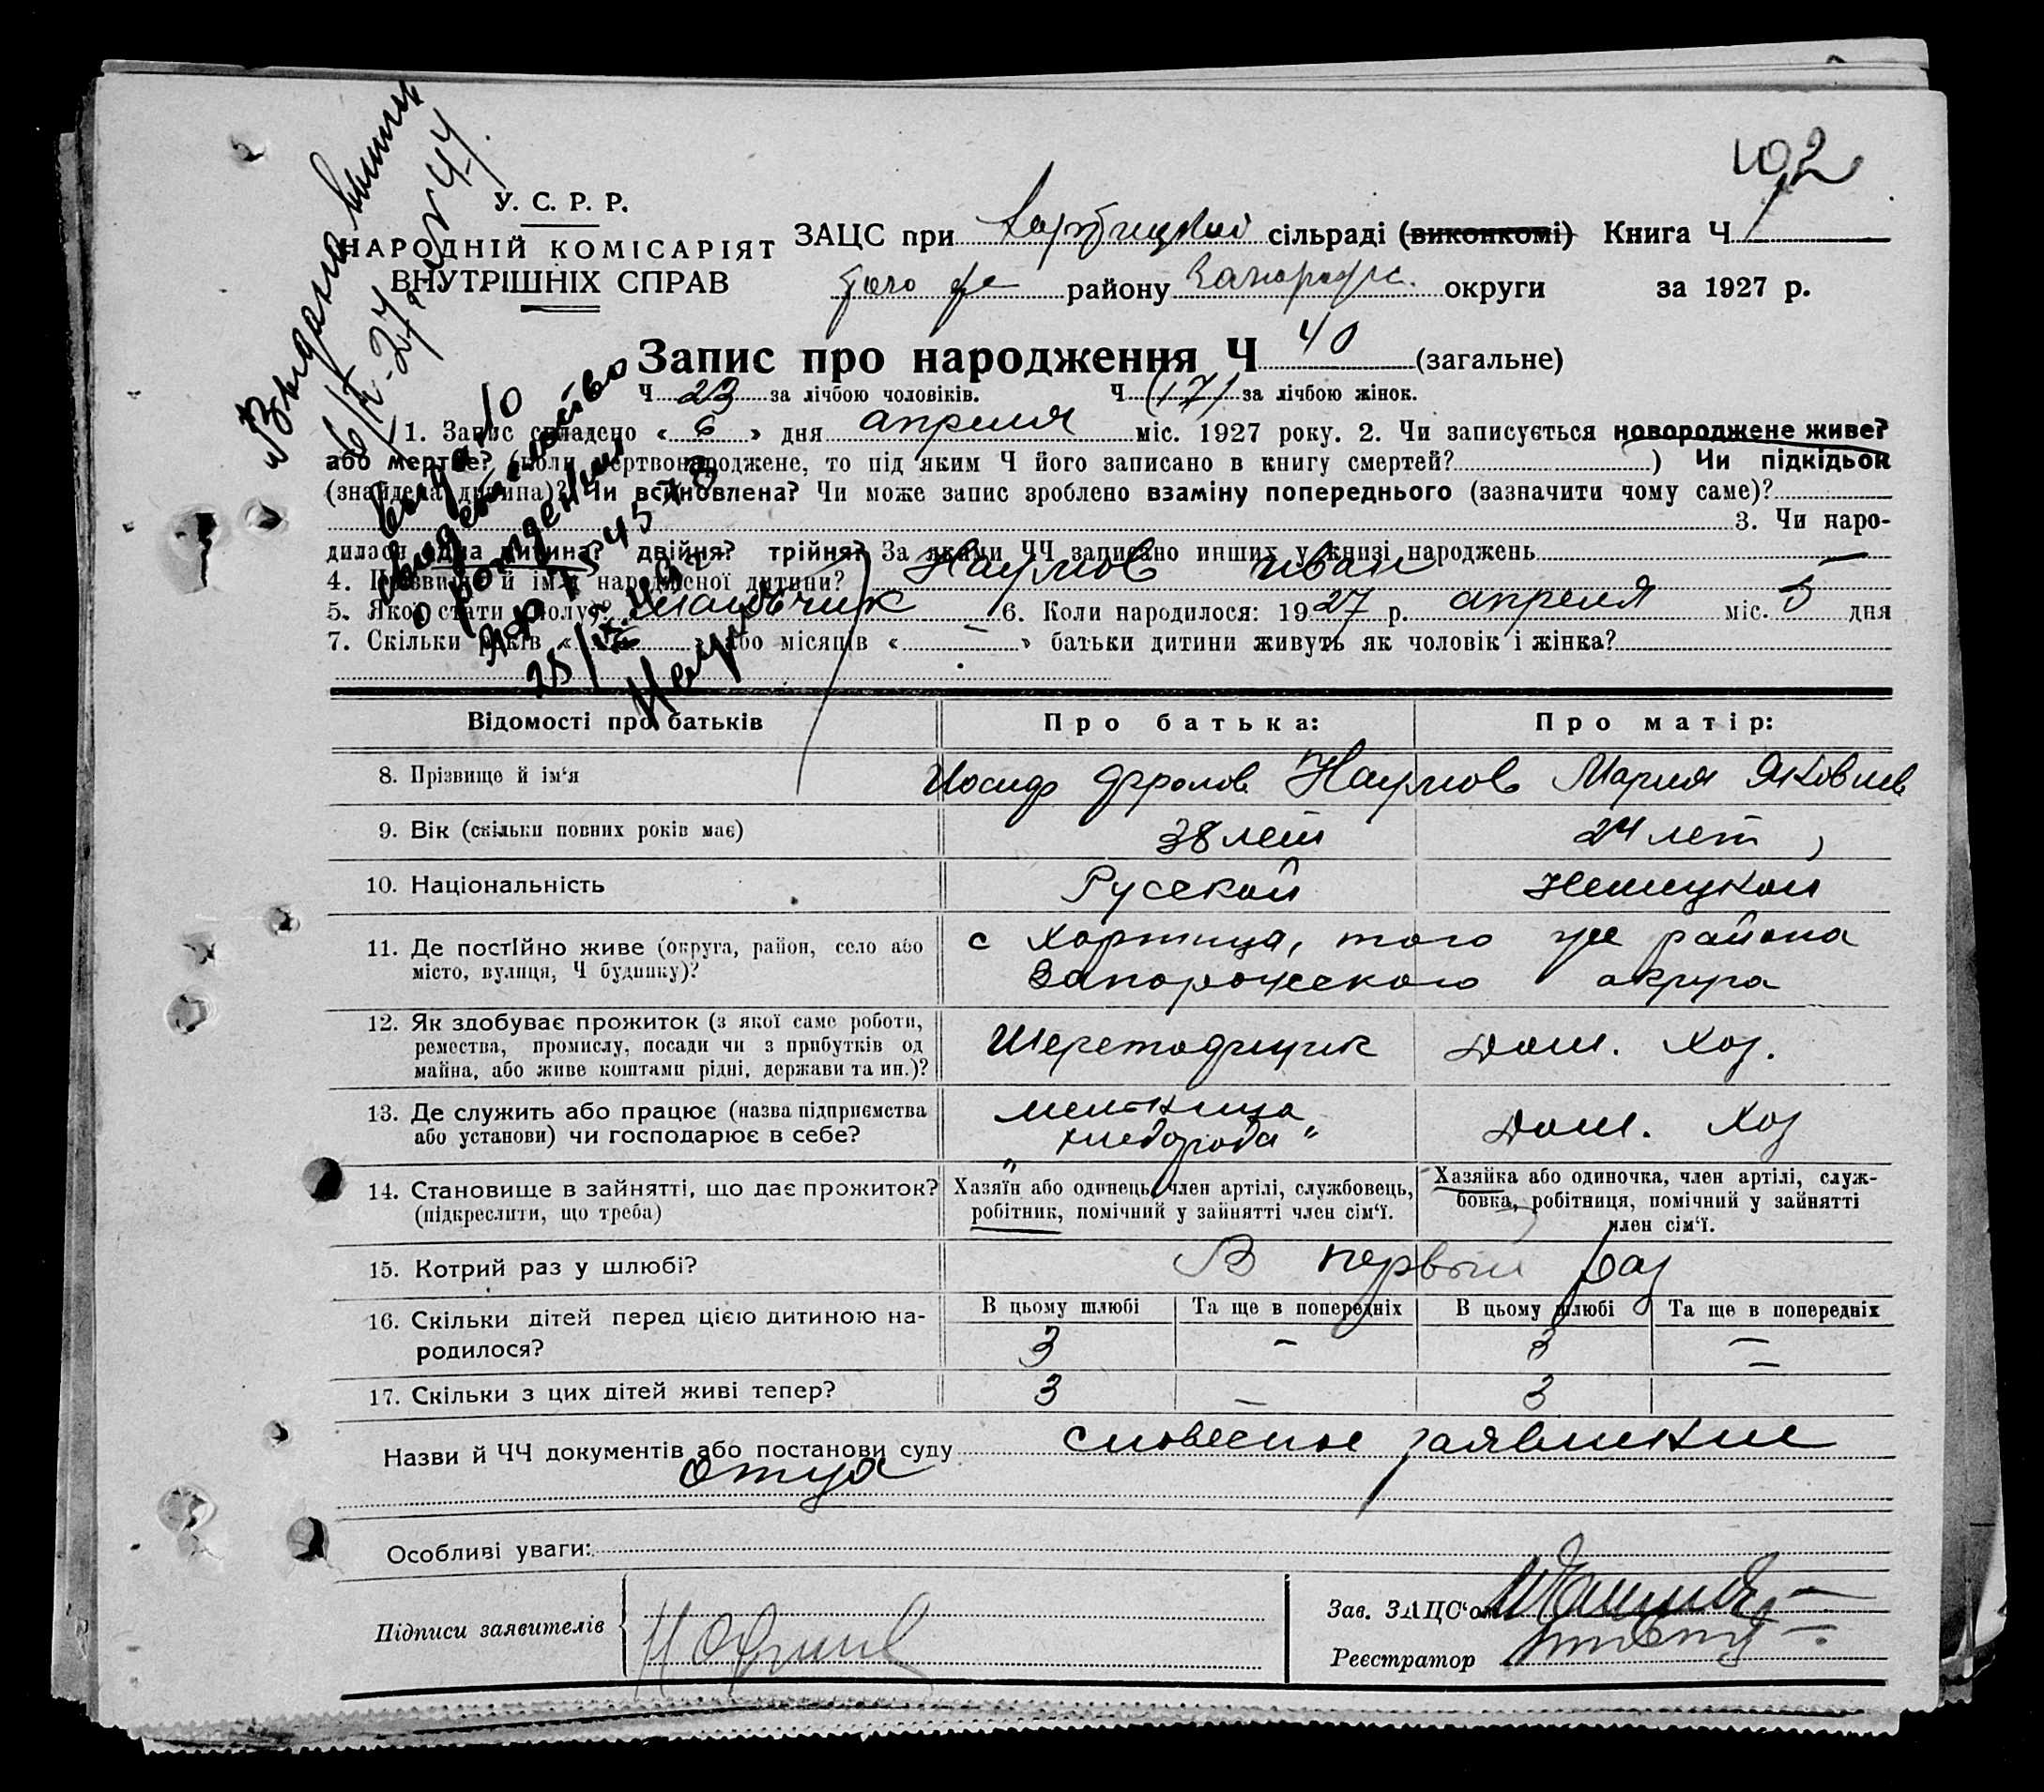 102
У. С. Р. Р.
НАРОДНІЙ КОМІСАРІЯТ
ВНУТРІШНІХ СПРАВ
ЗАЦС при сільраді (виконкомі) Книга Ч 1
того же району Запорожс. округи за 1927 р.
Выдана
Запис про народження Ч 40 (загальне)
Ч 23 за лічбою чоловіків. Ч (17) за лічбою жінок.
1. Запис складено « 6 » дня апреля міс. 1927 року. 2. Чи записується новороджене живе?
або мертве? (коли мертвонароджене, то під яким Ч його записано в книгу смертей? ) Чи підкідьок
(знайдена дитина)? Чи всиновлена? Чи може запис зроблено взаміну попереднього (зазначити чому саме)?
3. Чи наро-
дилася одна дитина? двійня? трійня? За якими ЧЧ записано инших у книзі народжень —
4. Прізвище й ім'я народженої дитини? Наумов Иван
5. Якої статі (полу)? мальчик 6. Коли народилося: 1927 р. апреля міс. 5 дня
7. Скільки років « » або місяців « – » батьки дитини живуть як чоловік і жінка?
свидетельство
о рождении
Відомості про батьків Про батька: Про матір:
8. Прізвище й ім'я Иосиф Фролов Наумов Мария Яковлев
9. Вік (скільки повних років має) 38 лет 24 лет
10. Національність Русской Немецкой
11. Де постійно живе (округа, район, село або місто, вулиця, Ч будинку)?
с Хортица, того же района
Запорожского округа
12. Як здобуває прожиток (з якої саме роботи,
ремества, промислу, посади чи з прибутків од
майна, або живе коштами рідні, держави та ин.)?
Шеретовщик Дом. Хоз.
13. Де служить або працює (назва підприємства
або установи) чи господарює в себе?
мельница Дом. Хоз
14. Становище в зайнятті, що дає прожиток?
(підкреслити, що треба)
Хазяїн або одинець, член артілі, службовець,
робітник, помічний у зайнятті член сім'ї.
Хазяйка або одиночка, член артілі, служ-
бовка, робітниця, помічний у зайнятті
член сім'ї.
15. Котрий раз у шлюбі? В первый раз
16. Скільки дітей перед цією дитиною на-
родилося?
В цьому шлюбі Та ще в попередніх В цьому шлюбі Та ще в попередніх
3 – 3 –
17. Скільки з цих дітей живі тепер? 3 – 3 –
Назви й ЧЧ документів або постанови суду словесное заявление
отца
Особливі уваги:
Підписи заявителів
Зав. ЗАЦС'ом
Реєстратор